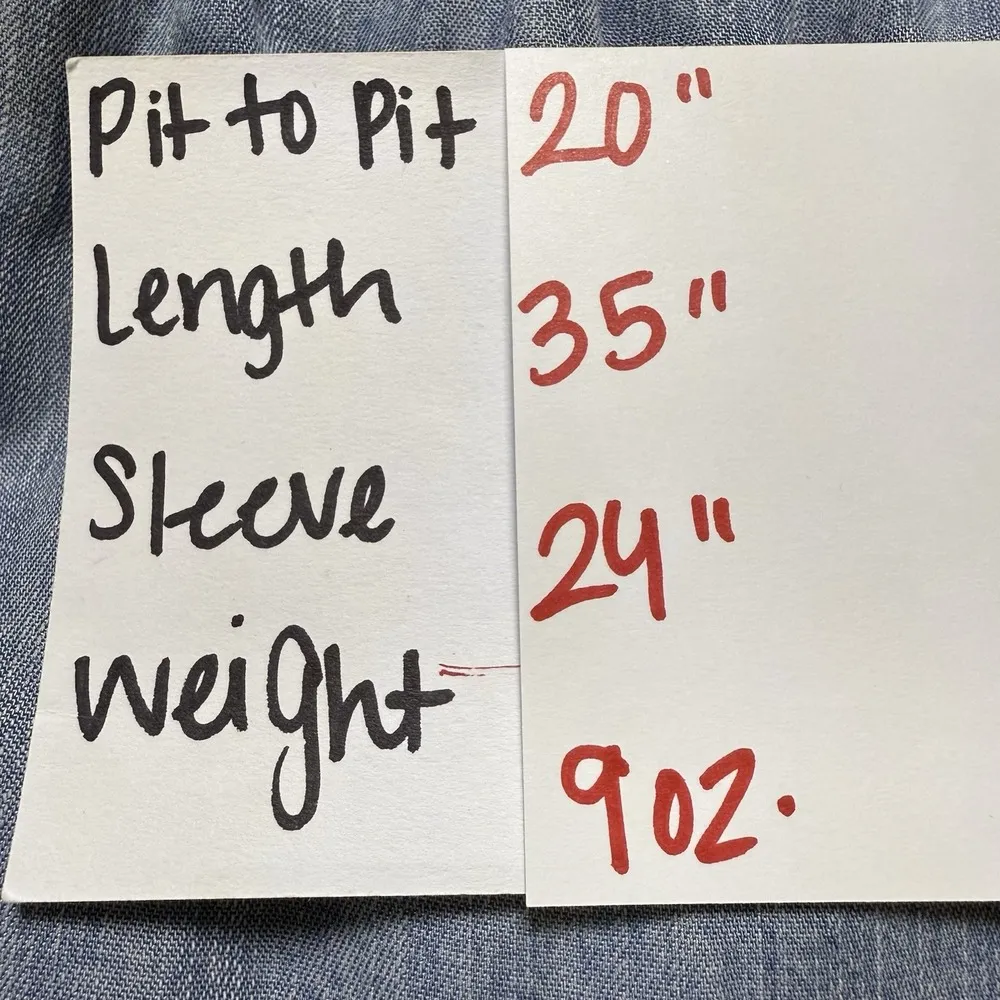 Pit to Pit 20"
Length 35"
Sleeve 24"
weight 9 oz.